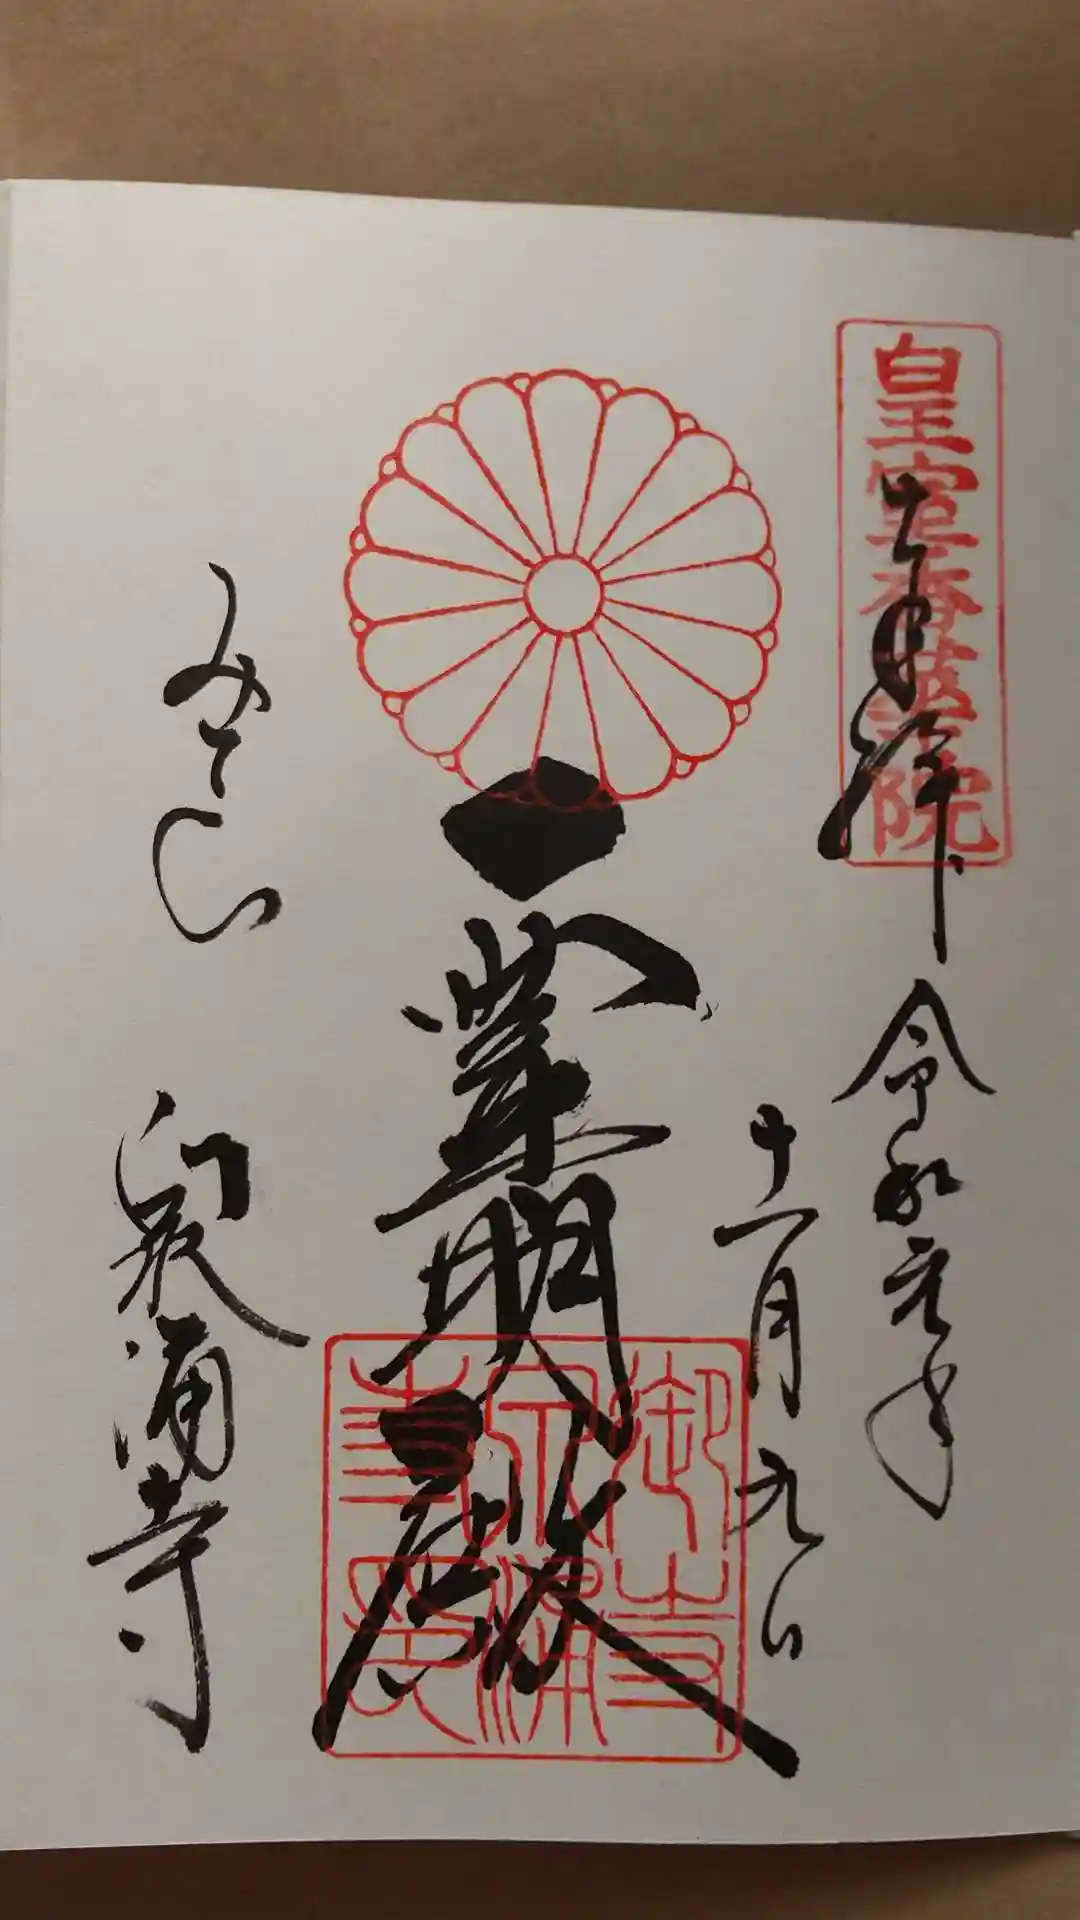 皇室香華院
奉拝
令和元年
十一月九日
霊明殿
御寺
泉涌
みてら
泉涌寺